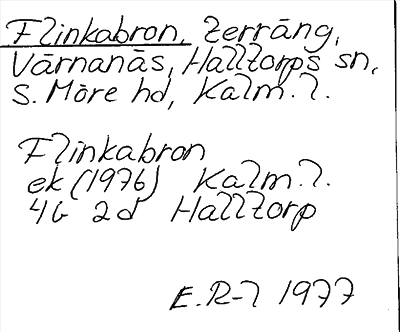 Flinkabron, terräng,
Värnanäs, Halltorps sn,
S. Möre hd, Kalm. l.
Flinkabron
ek (1976) Kalm. l.
4G 2d Halltorp
E. R-l 1977